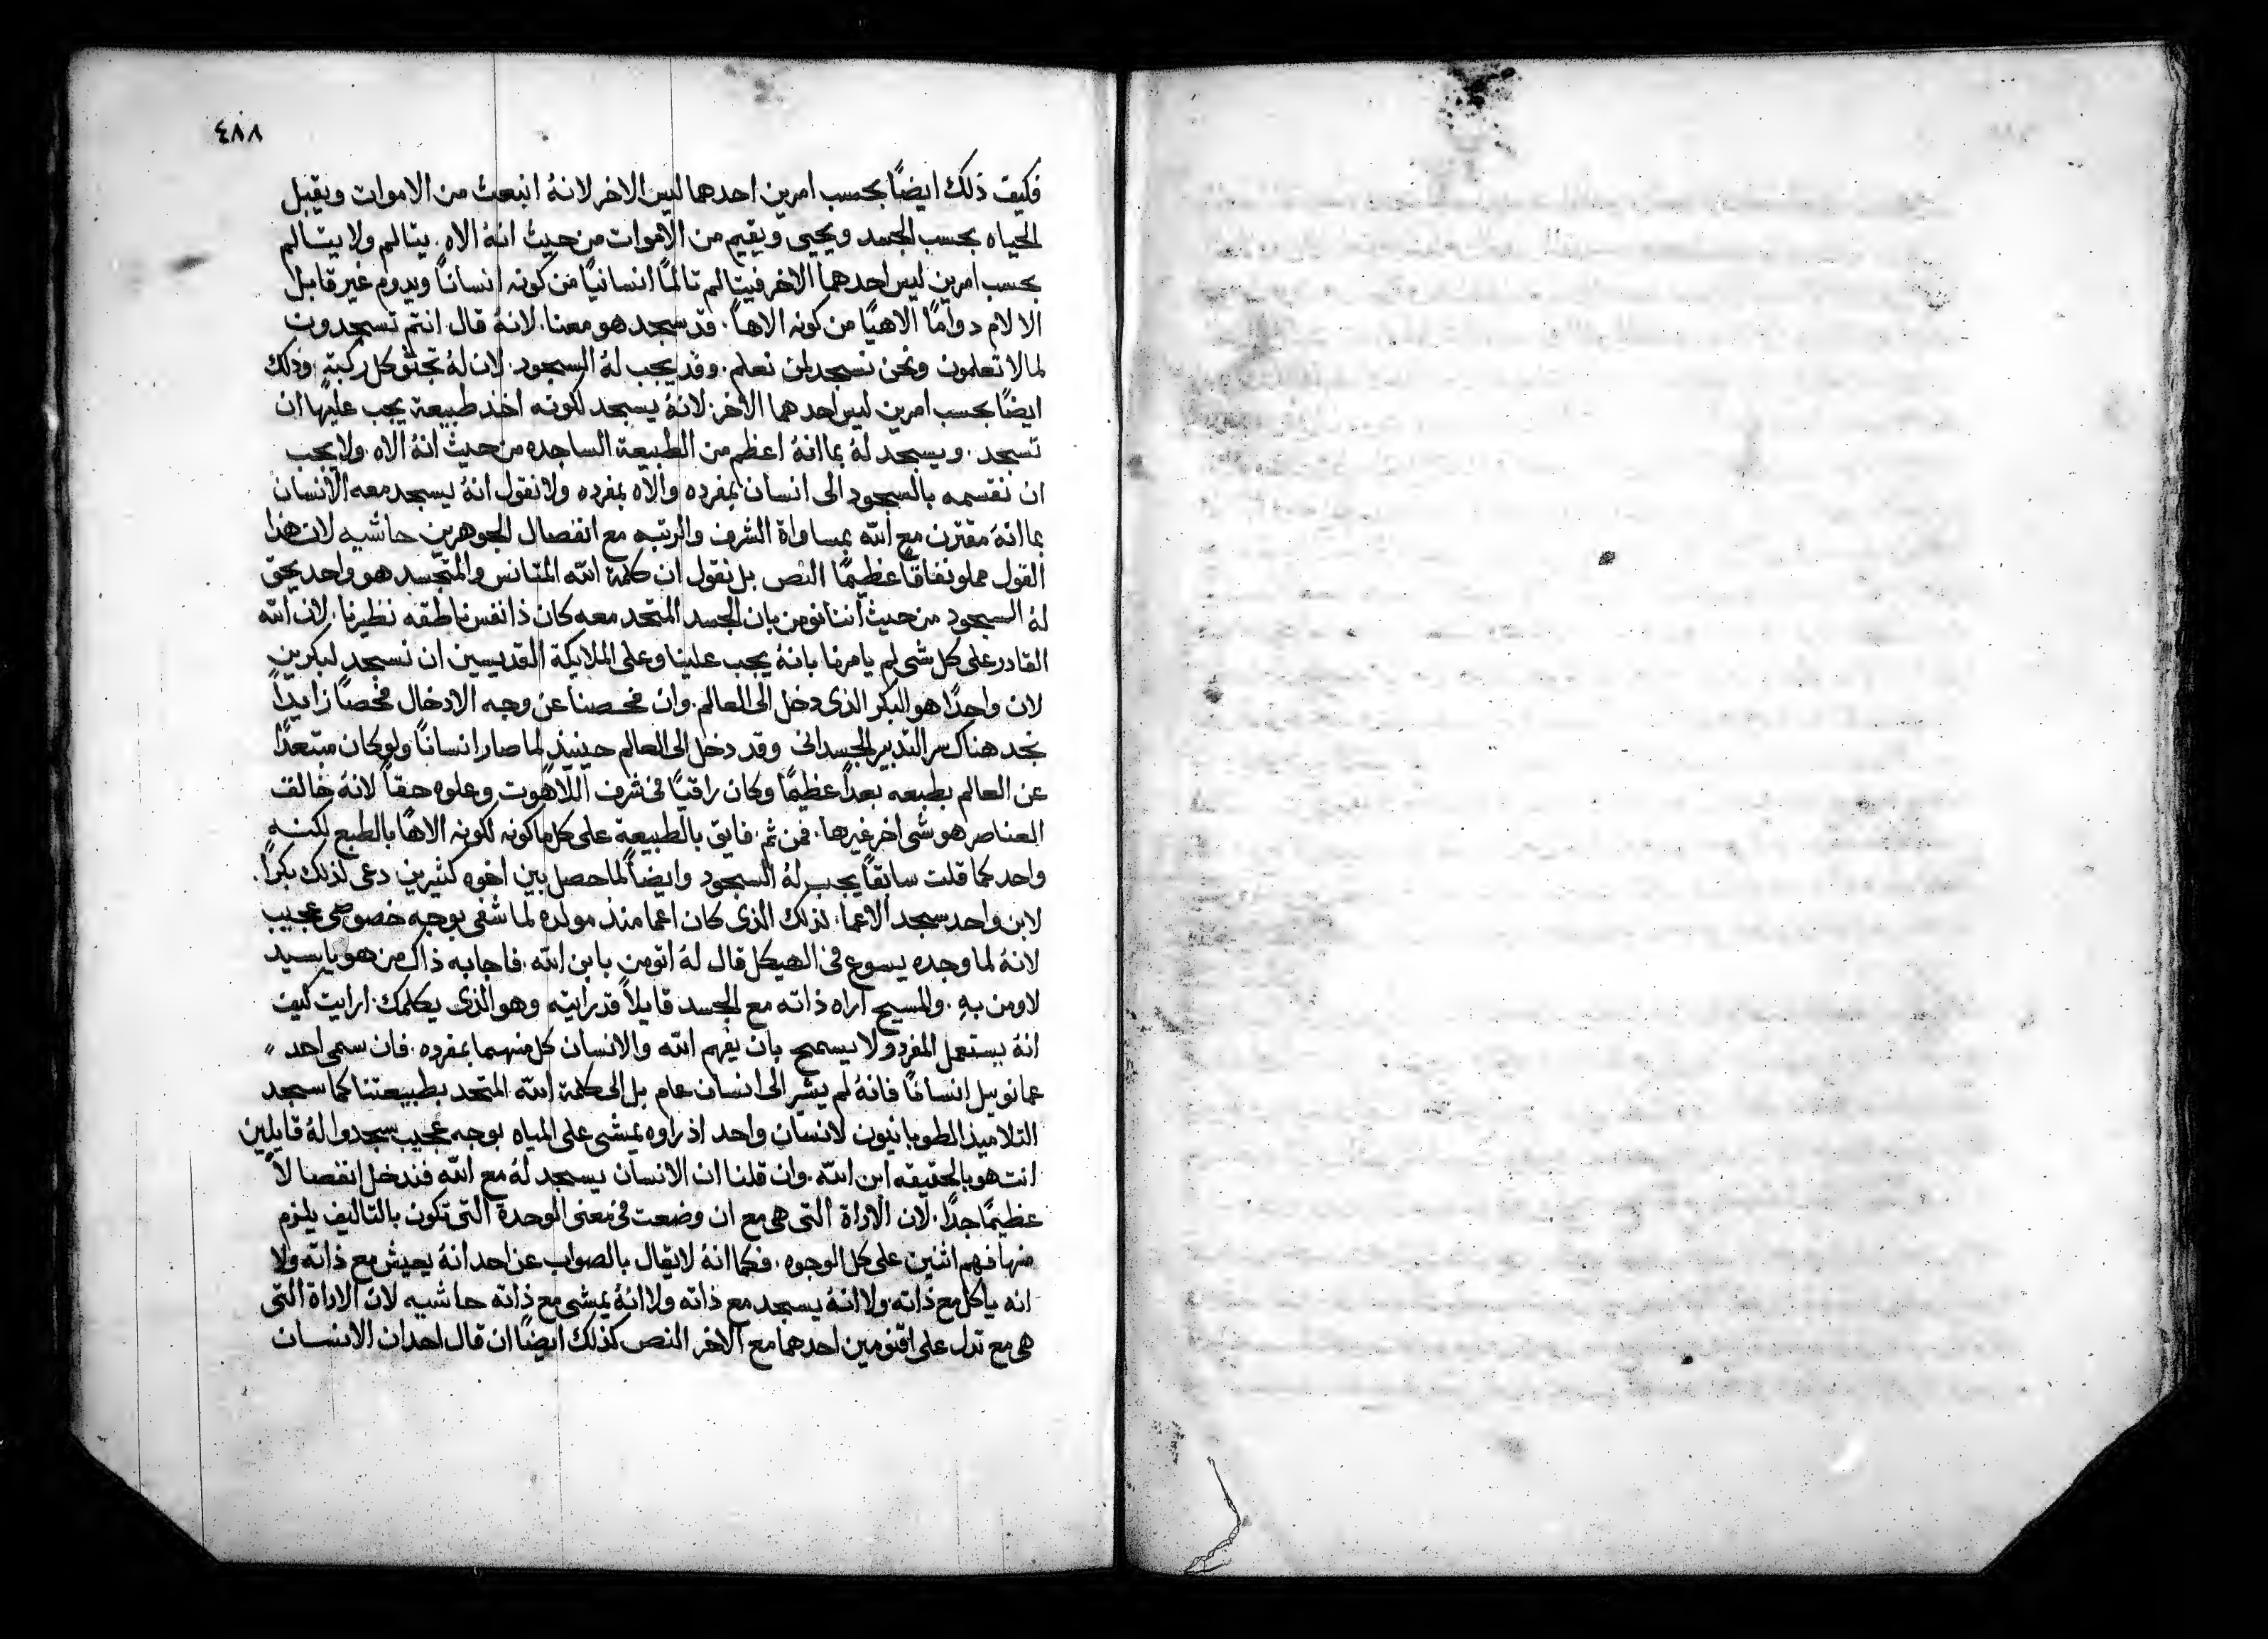 ٤٨٨
فكيف ذلك ايضًا بحسب امرين احدهما ليس الاخر لانهُ انبعث من الاموات ويقبل
الحياه بحسب الجسد ويحيى ويقيم من الاموات من حيث انهُ الاه . يتالم ولا يتالم
بحسب امرين ليس احدهما الاخر فيتالم تالمًا انسانيًا من كونه انسانًا ويدوم غير قابل
الالام دوامًا الاهيًا من كونه الاهاً . قد سجد هو معنا . لانهُ قال انتم تسجدون
لما لا تعلمون ونحن نسجد لمن نعلم . وقد يجب لهُ السجود . لان لهُ تجثو كل ركبةٍ وذلك
ايضًا بحسب امرين ليس احدهما الاخر . لانهُ يسجد لكونه اخذ طبيعة يجب عليها ان
تسجد . ويسجد لهُ بما انهُ اعظم من الطبيعة الساجده من حيث انهُ الاه . ولا يجب
ان نقسمه بالسجود الى انسان بمفرده والاه بمفرده ولا نقول انهُ يسجد معه الانسان
بما انهُ مقترن مع الله بمساواة الشرف والرتبه مع انفصال الجوهرين حاشيه لان هذا
القول مملو نفاقاً عظيمًا النص بل نقول ان كلمة الله المتانس والمتجسد هو واحد يحق
لهُ السجود من حيث اننا نومن بان الجسد المتحد معه كان ذا نفس ناطقه نظيرنا . لان الله
القادر على كل شى لم يامرنا بانهُ يجب علينا وعلى الملايكة القديسين ان نسجد لبكرين
لان واحدًا هو البكر الذى دخل الى العالم . وان فحصنا عن وجه الادخال فحصًا زايداً
نجد هناك سر التدبير الجسدانى وقد دخل الى العالم حينيذٍ لما صار انسانًا ولو كان مبتعدًا
عن العالم بطبعه بعداً عظيمًا وكان راقيًا فى شرف اللاهوت وعلوه حقاً لانهُ خالق
العناصر هو شى اخر غيرها . فمن ثم . فايق بالطبيعة على كل ما كونه لكونه الاهًا بالطبع لكنه
واحد كما قلت سابقاً يجب لهُ السجود وايضاً لما حصل بين اخوه كثيرين دعى لذلك بكراً .
لابن واحد سجد الاعما . لذلك الذى كان اعما منذ مولده لما شفى بوجه خصوصى عجيب
لانهُ لما وجده يسوع فى الهيكل قال لهُ اتومن بابن الله . فاجابه ذاك من هو يا سيد
لاومن بهِ . والمسيح اراه ذاته مع الجسد قايلاً قد رايته وهو الذى يكلمك . ارايت كيف
انهُ يستعمل المفرد ولا يسمح بان يفهم الله والانسان كل منهما بمفرده . فان سمى احد
عمانوييل انسانًا فانهُ لم يشر الى انسان عام بل الى كلمة الله المتحد بطبيعتنا كما سجد
التلاميذ الطوبانيون لانسان واحد اذ راوه يمشى على المياه بوجه عجيب سجدوا لهُ قايلين
انت هو بالحقيقه ابن الله . وان قلنا ان الانسان يسجد لهُ مع الله فندخل انفصالاً
عظيمًا جدًا . لان الاراة التى هى مع ان وضعت فى معنى الوحدة التى تكون بالتاليف يلزم
منها فهم اثنين على كل الوجوه . فكما انهُ لا يقال بالصواب عن احد انهُ يعيش مع ذاته ولا
انه ياكل مع ذاته ولا انهُ يسجد مع ذاته ولا انهُ يمشى مع ذاته حاشيه لان الاراة التى
هى مع تدل على اقنومين احدهما مع الاخر النص كذلك ايضًا ان قال احد ان الانسان